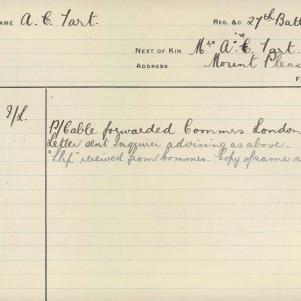 NAME A. C. Tart. REG. &c 27th Batt
NEXT OF KIN Mrs A. C. Tart.
ADDRESS Mount Pleas
F
P/Cable forwarded Commrs London
Letter sent Inquirer advising as above.
"Slip" received from Commrs. Copy of same